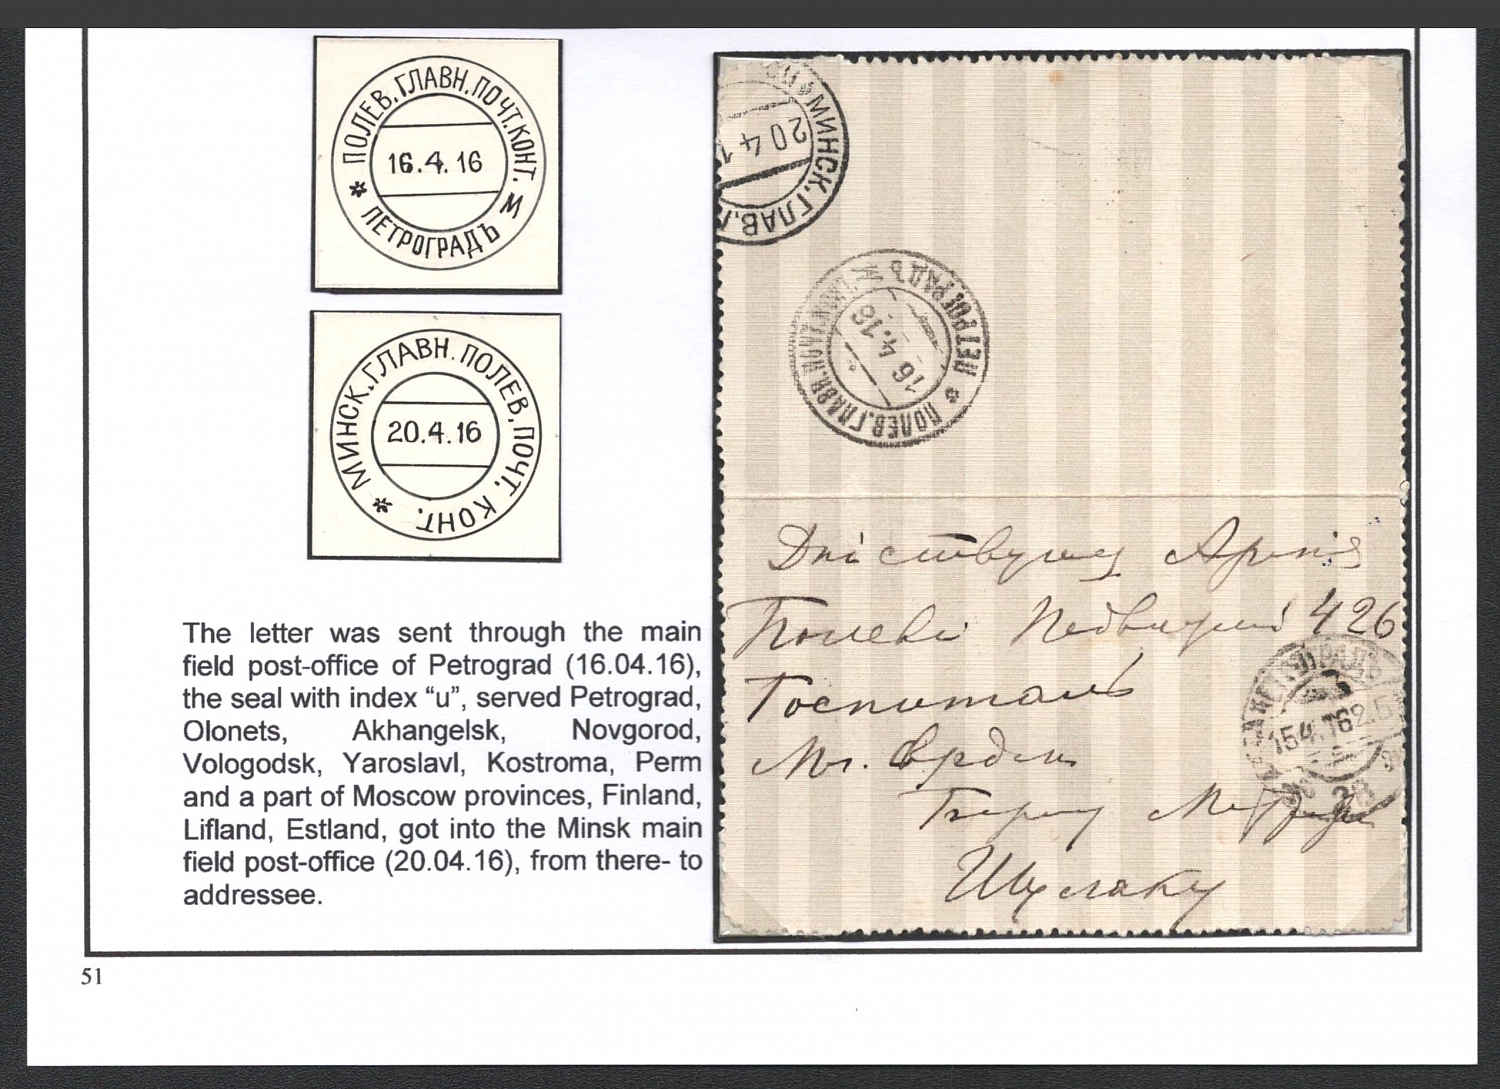 * ПОЛЕВ. ГЛАВН. ПОЧТ. КОНТ. И
16.4.16
ПЕТРОГРАДЪ
* МИНСК. ГЛАВН. ПОЛЕВ. ПОЧТ. КОНТ.
20.4.16
The letter was sent through the main
field post-office of Petrograd (16.04.16),
the seal with index “u”, served Petrograd,
Olonets, Akhangelsk, Novgorod,
Vologodsk, Yaroslavl, Kostroma, Perm
and a part of Moscow provinces, Finland,
Lifland, Estland, got into the Minsk main
field post-office (20.04.16), from there- to
addressee.
МИНСК. ГЛАВ.
20 4 1
ПОЛЕВ. ГЛАВН. ПОЧТ. КОНТ. И
16.4.16
ПЕТРОГРАДЪ *
426
Госпиталь
ПЕТРОГРАДЪ
15 4.16
28
Шуслаку
51